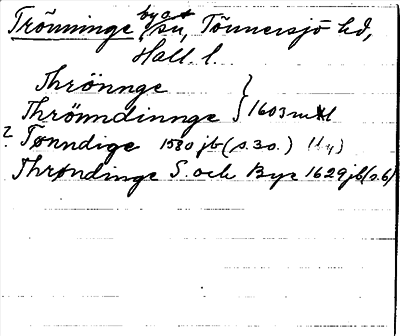 Trönninge by o. sn, Tönnersjö hd,
Hall. l.
Thrönnge
Thrömdinnge } 1603 mtl
? Tonndige 1580 jb (s. 30.)
Throndinge S. och Bye 1629 jb (s. 6)